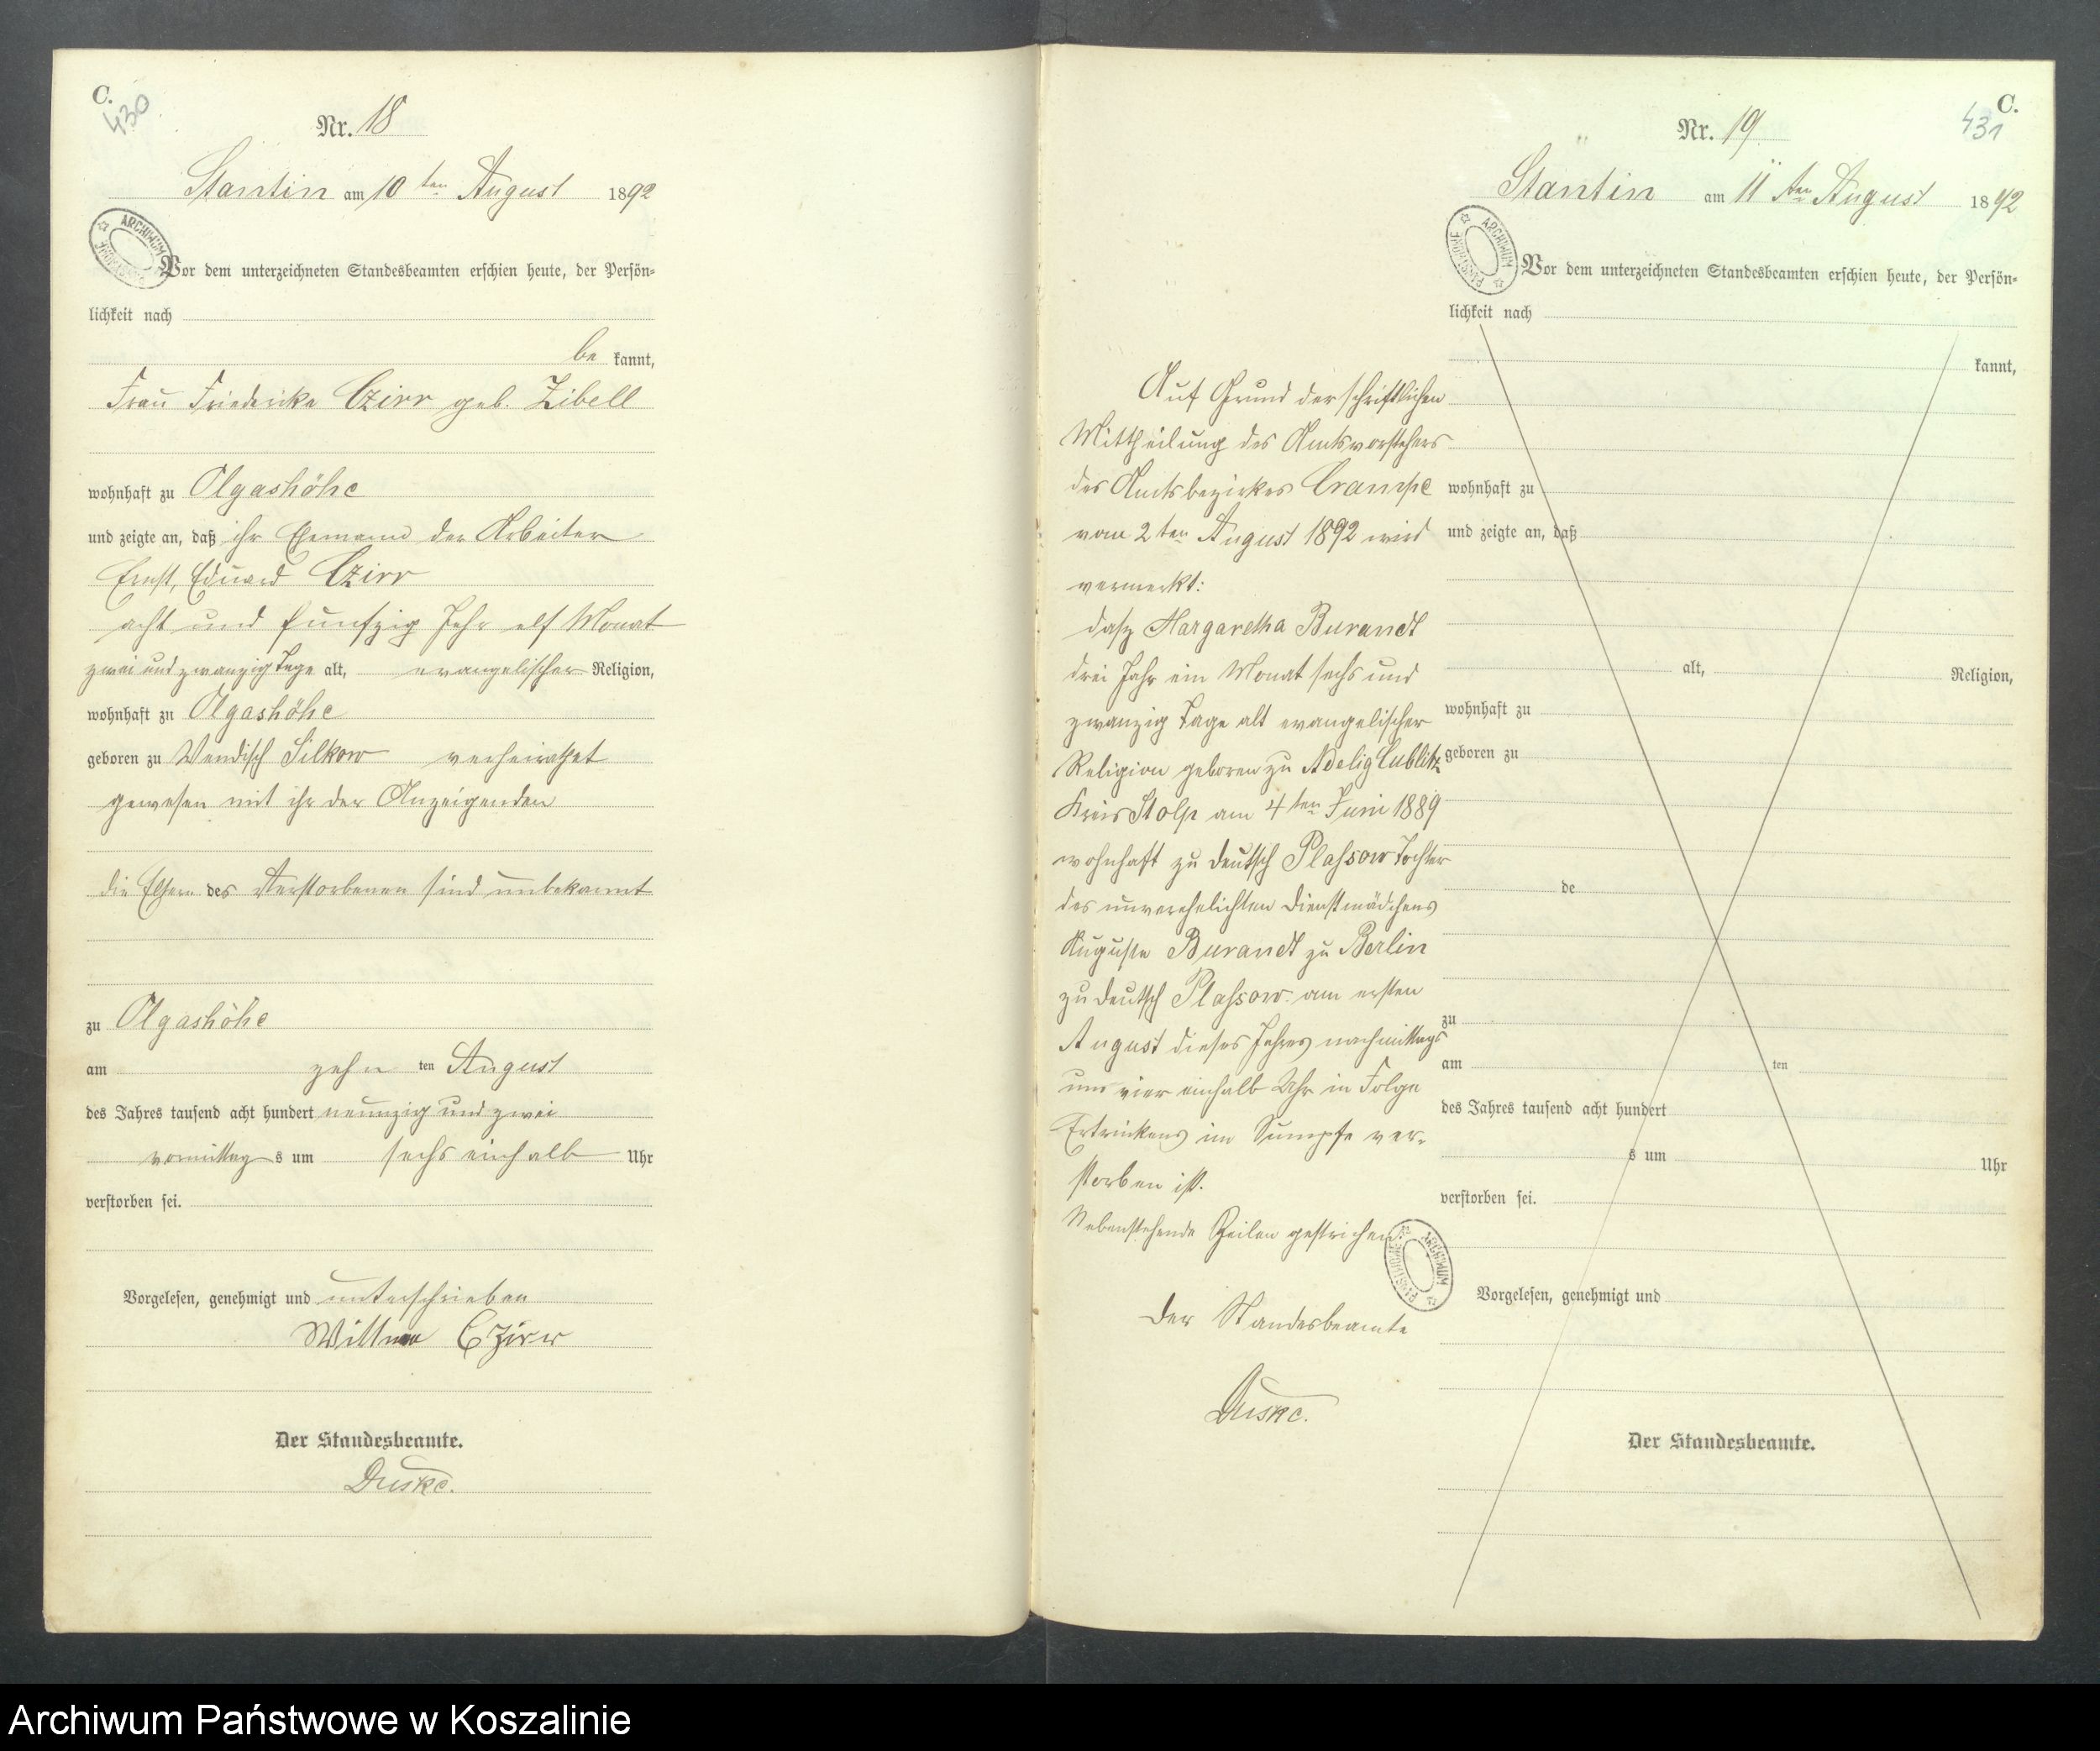 C.
430
Nr. 18
Stantin am 10 ten August 1892
ARCHIWUM PAŃSTWOWE
Vor dem unterzeichneten Standesbeamten erschien heute, der Persön-
lichkeit nach
be kannt,
Frau Friederike Czirr geb. Zibell
wohnhaft zu Olgashöhe
und zeigte an, daß ihr Ehemann der Arbeiter
Ernst, Eduard Czirr
acht und fünfzig Jahr elf Monat
zwei und zwanzig Tage alt, evangelischer Religion,
wohnhaft zu Olgashöhe
geboren zu Wendisch Silkow verheirathet
gewesen mit ihr der Anzeigenden
die Eltern des Verstorbenen sind unbekannt
zu Olgashöhe
am zehn ten August
des Jahres tausend acht hundert neunzig und zwei
vormittag s um sechs einhalb Uhr
verstorben sei.
Vorgelesen, genehmigt und unterschrieben
Wittwe Czirr
Der Standesbeamte.
Duske.
C.
431
Nr. 19
Stantin am 11 ten August 1892
ARCHIWUM PAŃSTWOWE
Vor dem unterzeichneten Standesbeamten erschien heute, der Persön-
lichkeit nach
kannt,
wohnhaft zu
und zeigte an, daß
alt, Religion,
wohnhaft zu
geboren zu
de
zu
am ten
des Jahres tausend acht hundert
s um Uhr
verstorben sei.
Vorgelesen, genehmigt und
Der Standesbeamte.
Auf Grund der schriftlichen
Mittheilung des Amtsvorstehers
des Amtsbezirkes Crampe
vom 2 ten August 1892 wird
vermerkt:
dasz Margaretha Burandt
drei Jahr ein Monat sechs und
zwanzig Tage alt evangelischer
Religion geboren zu Adelig Lublitz
Kreis Stolp am 4 ten Juni 1889
wohnhaft zu deutsch Plassow Tochter
des unverehelichten Dienstmädchens
Auguste Burandt zu Berlin
zu deutsch Plassow am ersten
August dieses Jahres nachmittags
um vier einhalb Uhr in Folge
Ertrinkens im Sumpfe ver-
storben ist.
Nebenstehende Zeilen gestrichen.
ARCHIWUM PAŃSTWOWE
Der Standesbeamte
Duske.
Archiwum Państwowe w Koszalinie